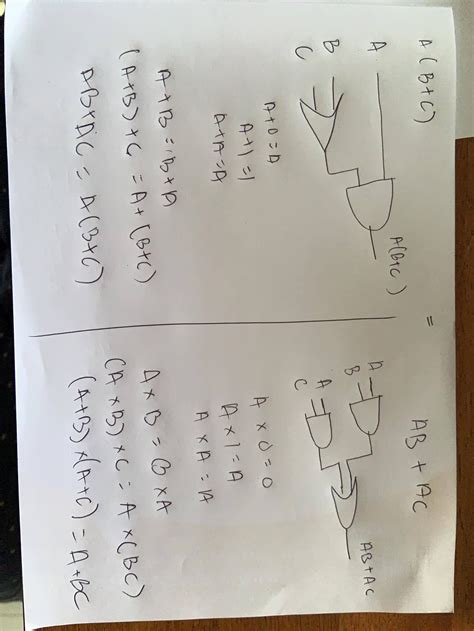 A(B+C) = AB + AC
A
B
C
A(B+C)
A+0=A
A+1=1
A+A=A
A+B=B+A
(A+B)+C = A+(B+C)
AB+AC = A(B+C)
A
B
A
C
AB+AC
A×0=0
A×1=A
A×A=A
A×B=B×A
(A×B)×C=A×(BC)
(A+B)×(A+C)=A+BC